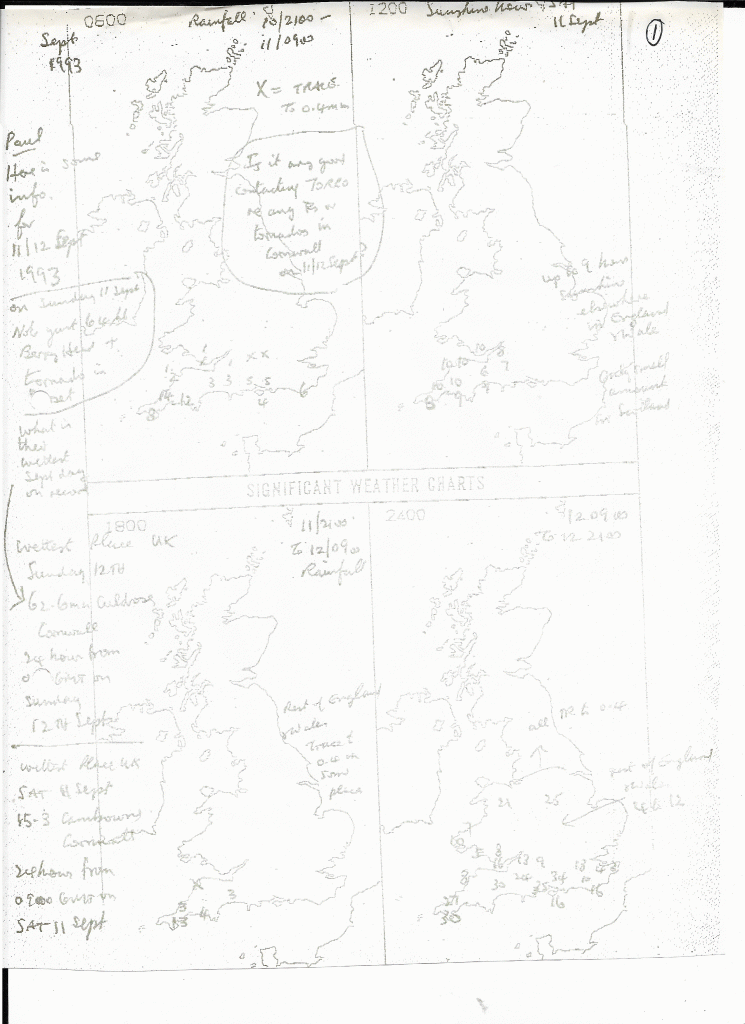 0600
Sept
1993
Rainfall 10/2100 –
11/0900
X = TRACE
To 0.4mm
1200
Sunshine hours SAT
11 Sept
1
Paul
Here is some
info.
for
11/12 Sept
1993
Is it any good
contacting TORRO
re any or
tornados in
Cornwall
on 11/12 Sept
on Sunday 11 Sept
Not gust 64
Berry Head +
tornado in
What is
their
wettest
Sept day
on record
x x
3 3 5 5
12
8
4
6
up to 9 hours
Sunshine
elsewhere
in England
Wales
small
amount
in Scotland
10 10
10
8
9
SIGNIFICANT WEATHER CHARTS
1800
11/2100
To 12/0900
Rainfall
Wettest Place UK
Sunday 12TH
62.6mm Culdrose
Cornwall
24 hour from
GMT on
Sunday
12TH Sept
Wettest Place UK
SAT 11 Sept
15-3 Cambourne
Cornwall
24 hour from
0900 GMT on
SAT 11 Sept
Rest of England
Wales
Trace to
0.4 in
some
places
X
3
3
4
2400
12 0900
To 12 2100
all TR to 0.4
rest of England
Wales
4 to 12
21 25
13 9
24 34
30
16
16
30